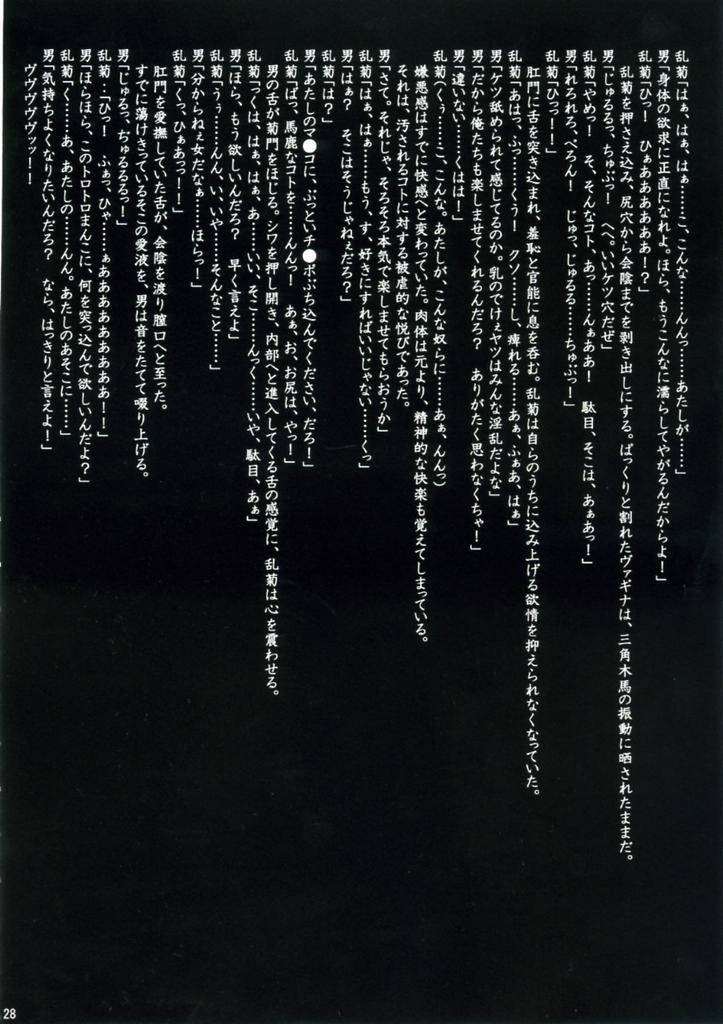 乱菊「はぁ、はぁ、はぁ……こ、こんな……んんっ……あたしが……」
男「身体の欲求に正直になれよ。ほら、もうこんなに濡らしてやがるんだからよ！」
乱菊「ひっ！　ひぁああああああ！？」
　乱菊を押さえ込み、尻穴から会陰までを剥き出しにする。ぱっくりと割れたヴァギナは、三角木馬の振動に晒されたままだ。
男「じゅるるっ、ちゅぷっ！　へへ、いいケツ穴だぜ」
乱菊「やめっ！　そ、そんなコト、あっ……んぁああ！　駄目、そこは、あぁあっ！」
男「れろれろ、べろん！　じゅっ、じゅるる……ちゅぷっ！」
乱菊「ひっっ――！」
　肛門に舌を突き込まれ、羞恥と官能に息を呑む。乱菊は自らのうちに込み上げる欲情を抑えられなくなっていた。
乱菊「あはっ、ふっ……くぅ！　クソ……し、痺れる……あぁ、ふぁあ、はぁ」
男「ケツ舐められて感じてるのか。乳のでけぇヤツはみんな淫乱だよな」
男「だから俺たちも楽しませてくれるんだろ？　ありがたく思わなくちゃ！」
男「違いない……くはは！」
乱菊（くぅ……こ、こんな。あたしが、こんな奴らに……あぁ、んんっ）
　嫌悪感はすでに快感へと変わっていた。肉体は元より、精神的な快楽も覚えてしまっている。
　それは、汚されるコトに対する被虐的な悦びであった。
男「さて。それじゃ、そろそろ本気で楽しませてもらおうか」
乱菊「はぁ、はぁ……もう、す、好きにすればいいじゃない……くっ」
男「はぁ？　そこはそうじゃねぇだろ？」
乱菊「は？」
男「あたしのマ●コに、ぶっといチ●ポぶち込んでください、だろ！」
乱菊「ばっ、馬鹿なコトを……んんっ！　あぁ、お、お尻は、やっ！」
　男の舌が菊門をほじる。シワを押し開き、内部へと進入してくる舌の感覚に、乱菊は心を震わせる。
乱菊「っくは、はぁ、はぁ、あ……いい、そこ……んっく……いや、駄目、あぁ」
男「ほら、もう欲しいんだろ？　早く言えよ」
乱菊「うぅ……んん、い、いや……そんなこと……」
男「分からねぇ女だなぁ……ほらっ！」
乱菊「くっ、ひぁあっ――！」
男「じゅるっ、ちゅるるるるっ！」
　肛門を愛撫していた舌が、会陰を渡り膣口へと至った。
　すでに蕩けきっているそこの愛液を、男は音をたてて啜り上げる。
乱菊：「ひっ！　ふぁっ、ひゃ……ぁああああああああああ！！」
男「ほらほら、このトロトロまんこに、何を突っ込んで欲しいんだよ？」
乱菊「く……あ、あたしの……んん。あたしのあそこに……」
男「気持ちよくなりたいんだろ？　なら、はっきりと言えよ！」
ヴヴヴヴヴッ！！
28